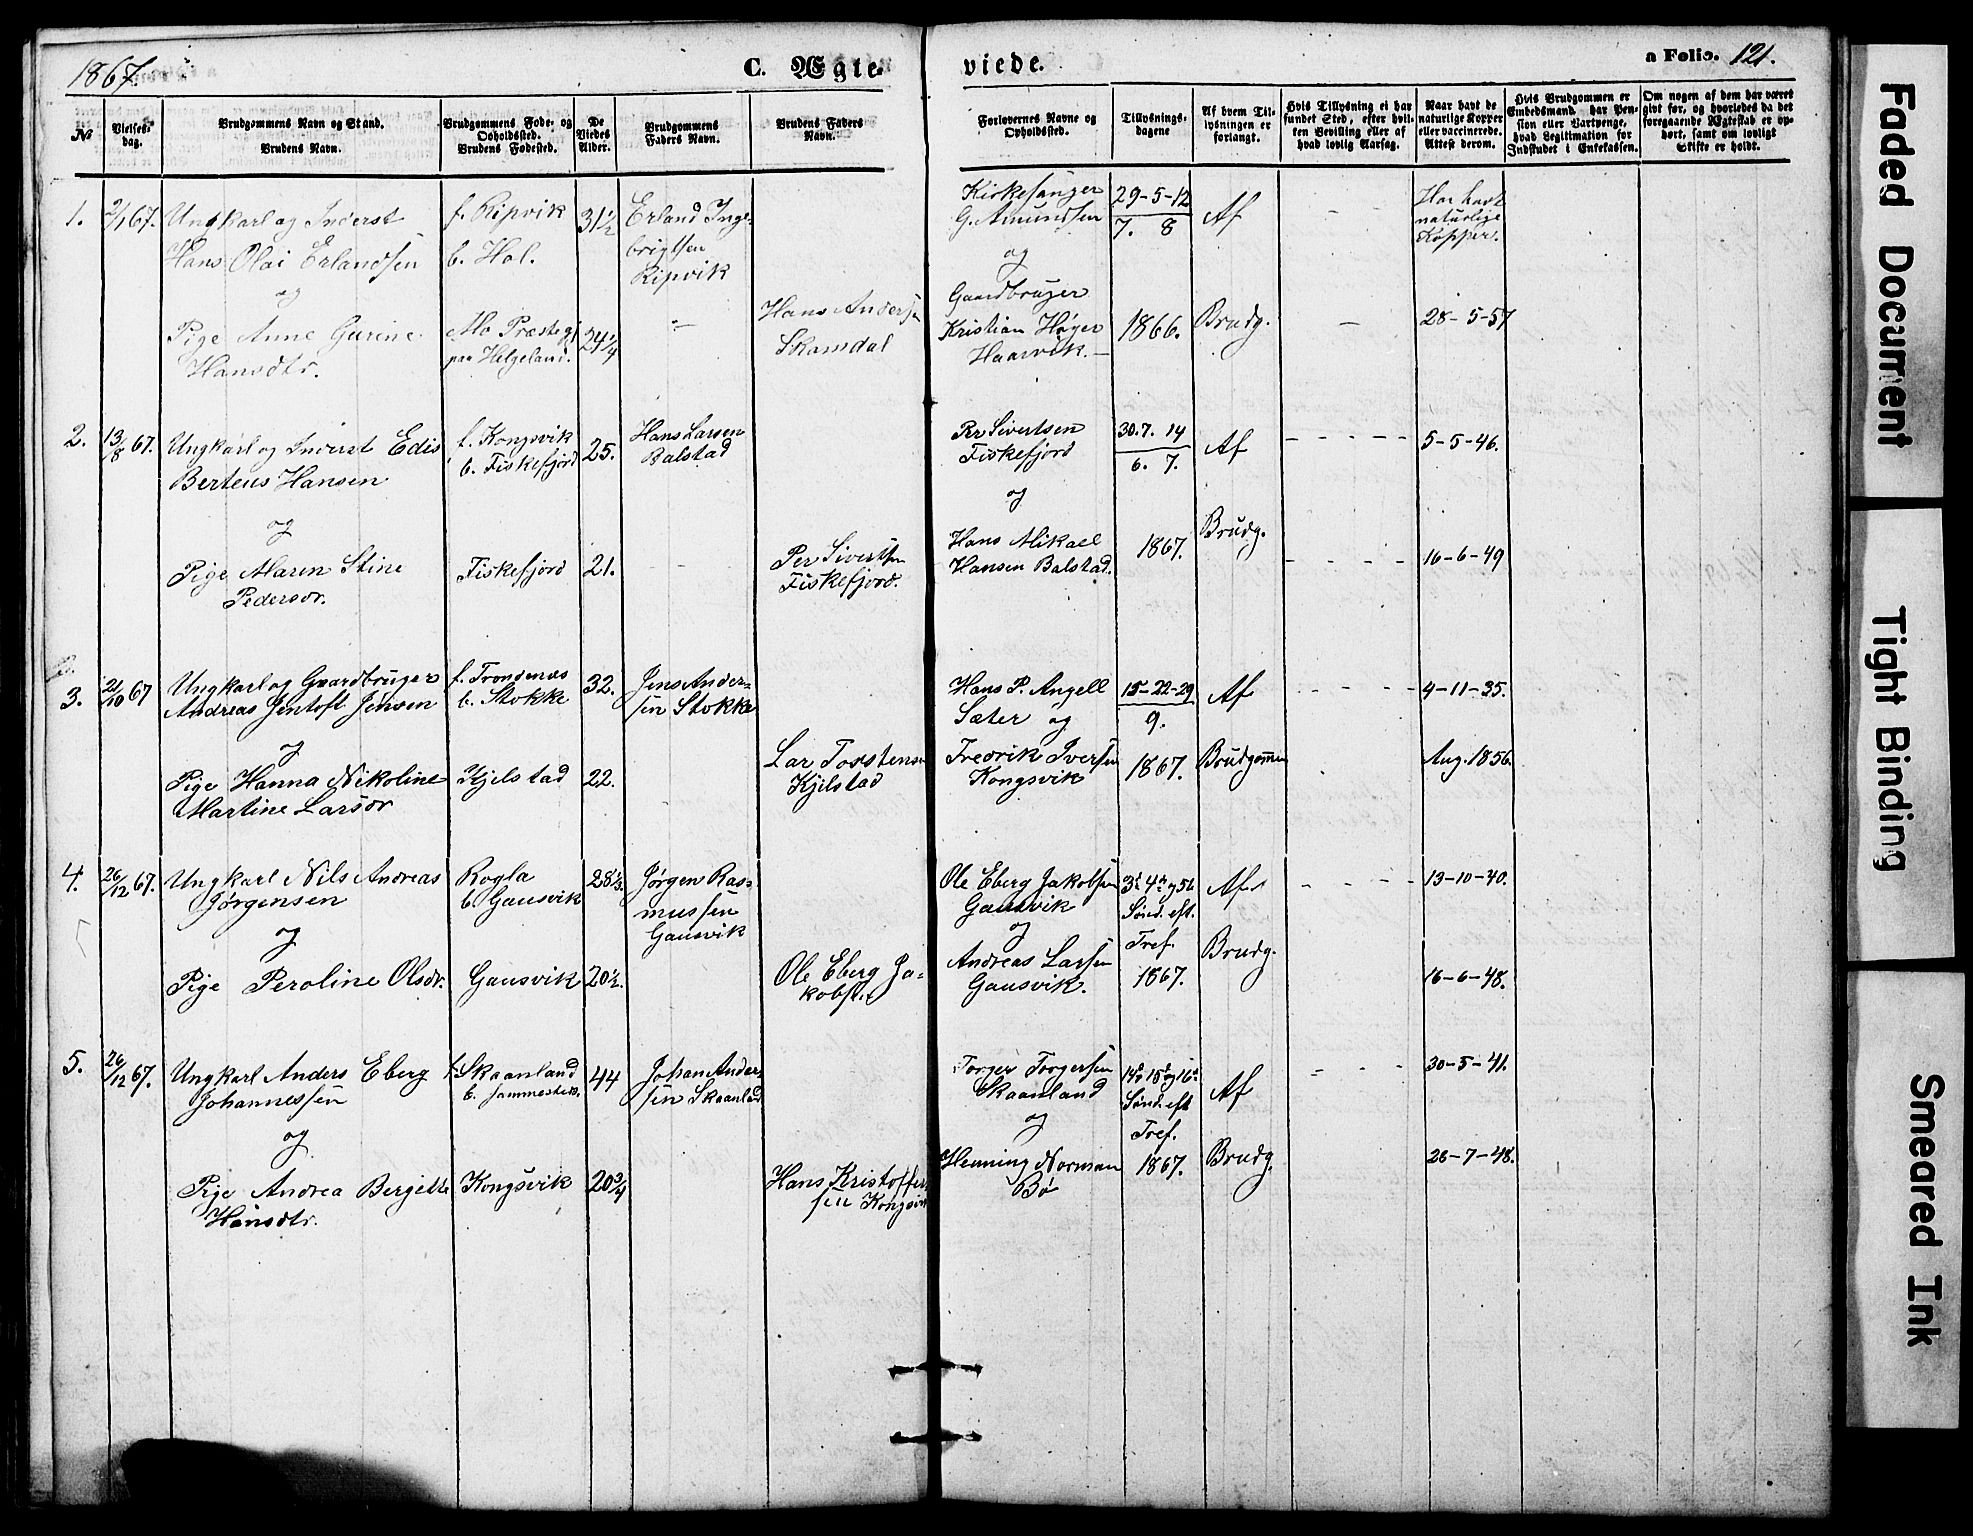 1867.
C. Ægte
viede.
a Folio. 121.
№
Vielses-
dag.
Brudgommens Navn og Stand.
Brudens Navn.
Brudgommens Føde- og
Opholdssted.
Brudens Fødested.
De
Viedes
Alder.
Brudgommens
Faders Navn.
Brudens Faders
Navn.
Forlovernes Navne og
Opholdssted.
Tillysnings-
dagene
Af hvem Til-
lysningen er
forlangt.
Hvis Tillysning ei har
fundet Sted, efter hvil-
ken Bevilling eller af
hvad lovlig Aarsag.
Naar havt de
naturlige Kopper
eller vaccinerede.
Attest derom.
Hvis Brudgommen er
Embedsmand, har Pen-
sion eller Vartpenge,
hvad Legitimation for
Indskudet i Enkekassen.
Om nogen af dem har været
gift før, og hvorledes da det
foregaaende Ægteskab er op-
hørt, samt om lovligt
Skifte er holdt.
1. 2/1 67. Ungkarl og Inderst
Hans Olai Erlandsen
og
Pige Anne Gurine
Hansdtr.
f. Ripvik
b. Hol.
Mo Præstegj
paa Helgeland.
31½
24¼
Erland Inge-
brigtsen
Ripvik
Hans Andersen
Skamdal
Kirkesanger
G. Amundsen
og
Gaardbruger
Kristian Høyer
Haarvik.
29-5-12
7. 8
1866.
Af
Brudg.
Har havt
naturlige
Kopper.
28-5-57
2. 13/8 67. Ungkarl og Inderst Edis
Berteus Hansen
og
Pige Maren Stine
Pedersdr.
f. Kongsvik
b. Fiskefjord
Fiskefjord
25.
21.
Hans Larsen
Balstad
Per Sivertsen
Fiskefjord.
Per Sivertsen
Fiskefjord
og
Hans Mikael
Hansen Balstad.
30.7. 14
6. 7.
1867.
Af
Brudg.
5-5-46.
16-6-49
3. 21/10 67 Ungkarl og Gaardbruger
Andreas Jentoft Jensen
og
Pige Hanna Nikoline
Martine Larsdr
f. Trondenæs
b. Stokke
Kjelstad
32.
22.
Jens Ander-
sen Stokke
Lar Torstensen
Kjilstad
Hans P. Angell
Sæter og
Fredrik Iversen
Kongsvik
15-22-29
9.
1867.
Af
Brudgommen
4-11-35.
Aug. 1856.
4. 26/12 67. Ungkarl Nils Andreas
Jørgensen
og
Pige Peroline Olsdr.
Rogla
b. Gausvik
Gausvik
28⅓.
20½.
Jørgen Ras-
mussen
Gausvik
Ole Eberg Ja-
kobsen
Ole Eberg Jakobsen
Gausvik
og
Andreas Larsen
Gausvik.
3d 4d og 5t
Sønd. eft.
Tref.
1867.
Af
Brudg.
13-10-40.
16-6-48.
5. 26/12 67. Ungkarl Anders Eberg
Johannessen
og
Pige Andrea Bergitte
Hansdtr.
f. Skaanland
b. sammesteds.
Kongsvik
44
20¾
Johan Ander-
sen Skaanland
Hans Kristoffer-
sen Kongsvik
Torger Torgersen
Skaanland
og
Henning Norman
Bø
14d 15d og 16d
Sønd. eft
Tref.
1867.
Af
Brudg.
30-5-41.
26-7-48.
Faded Document
Tight Binding
Smeared Ink